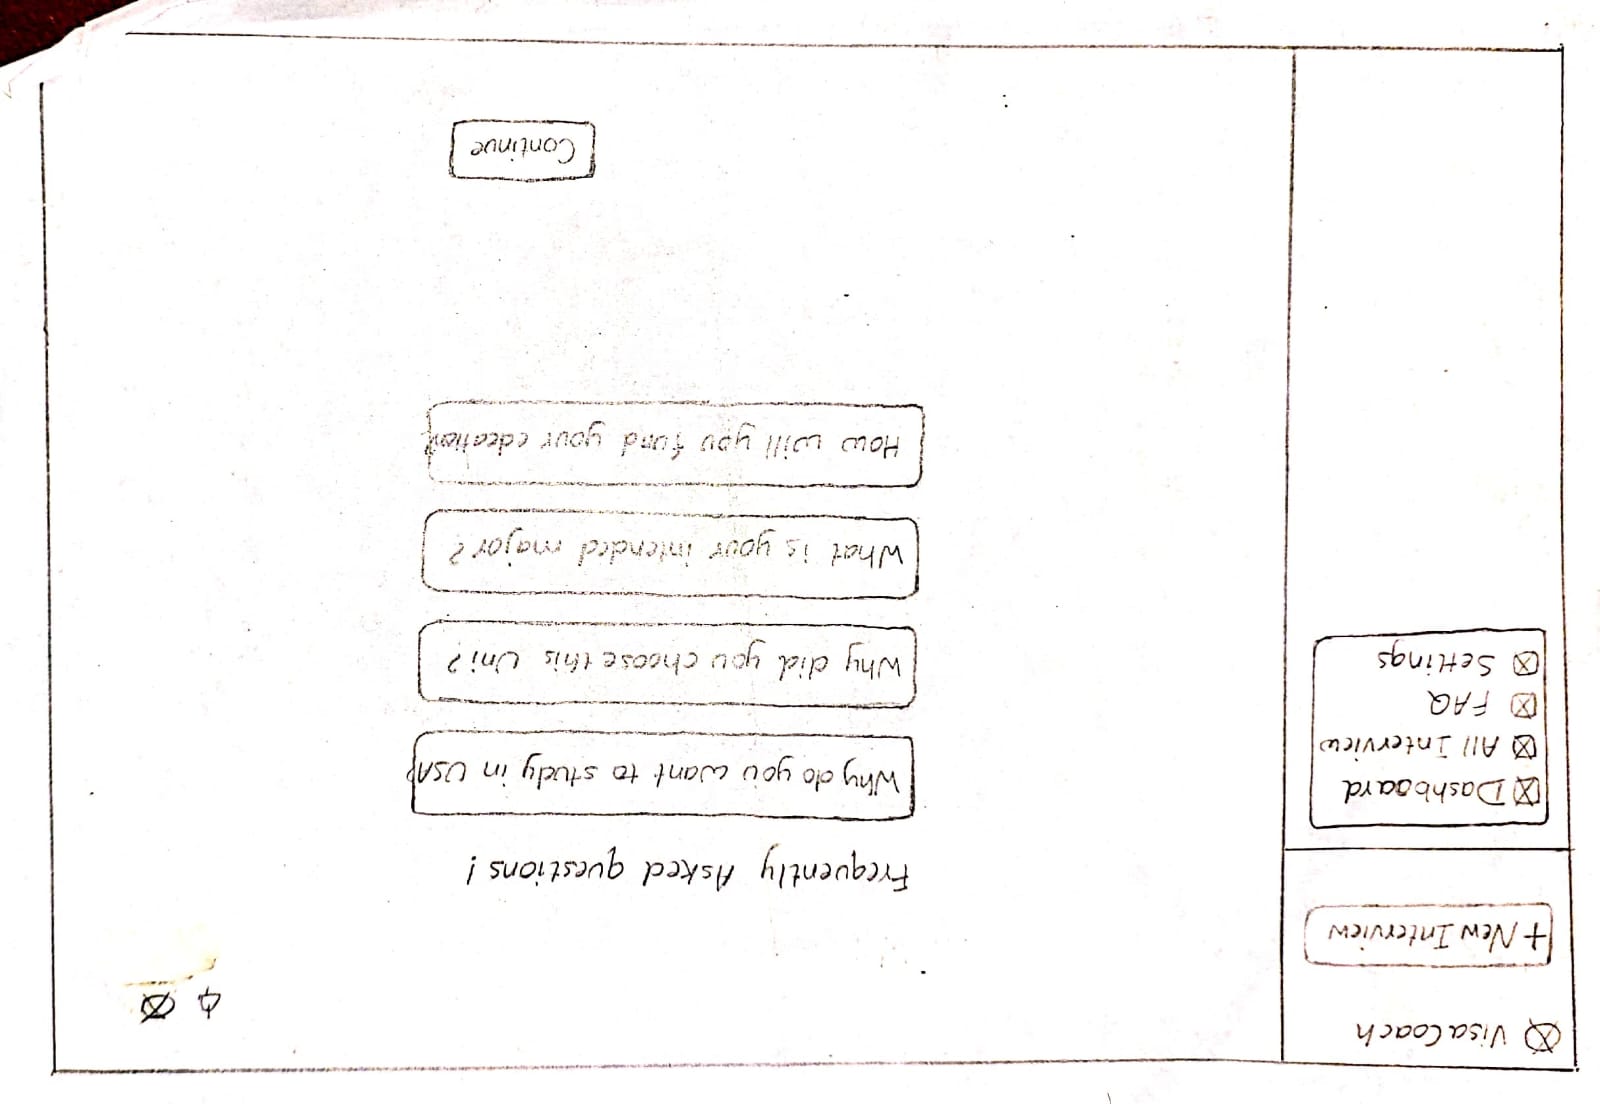 VisaCoach
+ New Interview
Dashboard
All Interview
FAQ
Settings
Frequently Asked questions!
Why do you want to study in USA?
Why did you choose this Uni?
What is your intended major?
How will you fund your edcation?
Continue